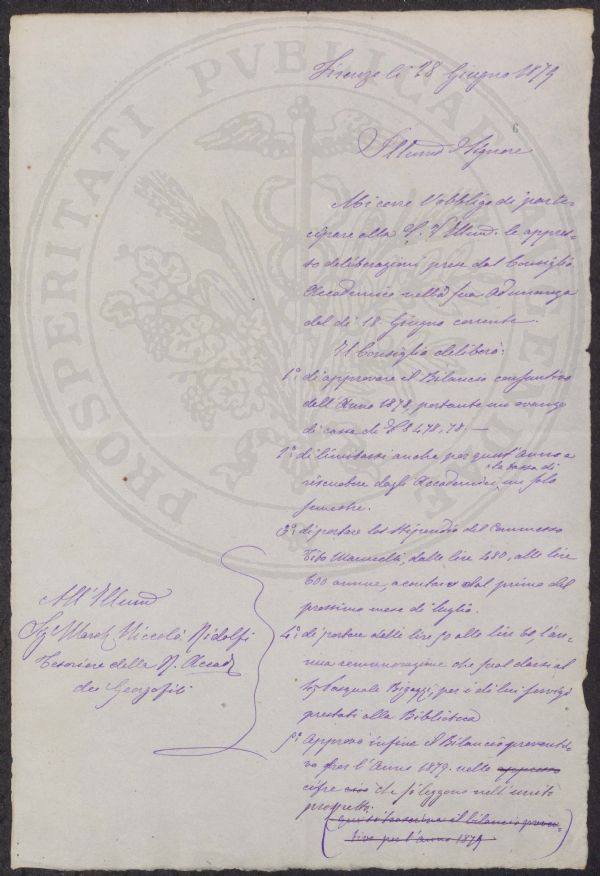 Firenze li 28 Giugno 1879
6
Illumo Signore
Mi corre l'obbligo di parte-
cipare alla S. V. Illma. le appres-
so deliberazioni prese dal Consiglio
Accademico nella sua Adunanza
del dì 18 Giugno corrente.
Il Consiglio deliberò:
1° di approvare il Bilancio consuntivo
dell'Anno 1878, portante un avanzo
di cassa di £ 8478,78.—
2° di limitarsi anche per quest'anno a
la tassa di
riscuotere dagli Accademici un solo
semestre.
3° di portare lo stipendio del Commesso
Tito Marucelli, dalle lire 480, alle lire
600 annue, a contare dal primo del
prossimo mese di luglio.
4° di portare dalle lire 50 alle lire 60, l'an-
nua remunerazione che suol darsi al
Sig. Pasquale Bigazzi, per i di lui servigi
prestati alla Biblioteca
5° Approvò infine il Bilancio preventi-
vo per l'Anno 1879. nelle appresso
cifre che si leggono nell'unito
progetto.
(Qui si trascrive il bilancio preven-
tivo per l'anno 1879)
All'Illumo
Sig. March. Niccolò Ridolfi
Tesoriere della R. Accada
dei Georgofili
PROSPERITATI PVBLICAE AVGENDAE